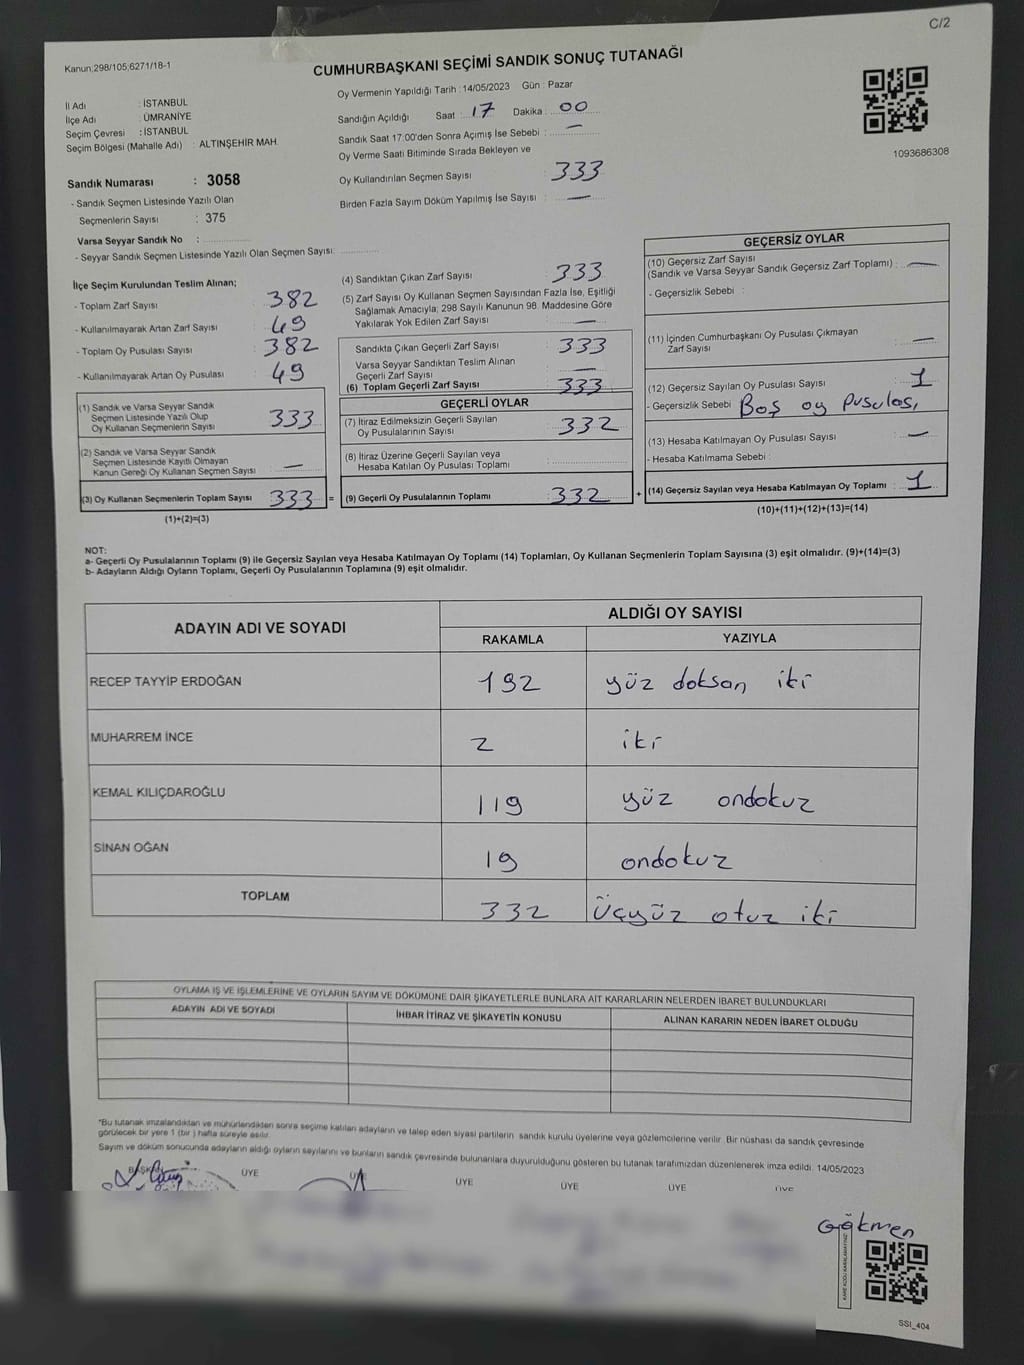 C/2
Kanun:298/105;6271/18-1
CUMHURBAŞKANI SEÇİMİ SANDIK SONUÇ TUTANAĞI
İl Adı : İSTANBUL
İlçe Adı : ÜMRANİYE
Seçim Çevresi : İSTANBUL
Seçim Bölgesi (Mahalle Adı) : ALTINŞEHİR MAH.
Oy Vermenin Yapıldığı Tarih : 14/05/2023 Gün : Pazar
Sandığın Açıldığı Saat : 17 Dakika : 00
Sandık Saat 17:00'den Sonra Açımış İse Sebebi : —
Oy Verme Saati Bitiminde Sırada Bekleyen ve
Oy Kullandırılan Seçmen Sayısı 333
Birden Fazla Sayım Döküm Yapılmış İse Sayısı : —
1093686308
Sandık Numarası : 3058
- Sandık Seçmen Listesinde Yazılı Olan
Seçmenlerin Sayısı : 375
Varsa Seyyar Sandık No :
- Seyyar Sandık Seçmen Listesinde Yazılı Olan Seçmen Sayısı:
İlçe Seçim Kurulundan Teslim Alınan;
- Toplam Zarf Sayısı : 382
- Kullanılmayarak Artan Zarf Sayısı : 49
- Toplam Oy Pusulası Sayısı : 382
- Kullanılmayarak Artan Oy Pusulası : 49
(1) Sandık ve Varsa Seyyar Sandık
Seçmen Listesinde Yazılı Olup
Oy Kullanan Seçmenlerin Sayısı : 333
(2) Sandık ve Varsa Seyyar Sandık
Seçmen Listesinde Kayıtlı Olmayan
Kanun Gereği Oy Kullanan Seçmen Sayısı : —
(3) Oy Kullanan Seçmenlerin Toplam Sayısı : 333 =
(1)+(2)=(3)
(4) Sandıktan Çıkan Zarf Sayısı : 333
(5) Zarf Sayısı Oy Kullanan Seçmen Sayısından Fazla İse, Eşitliği
Sağlamak Amacıyla; 298 Sayılı Kanunun 98. Maddesine Göre
Yakılarak Yok Edilen Zarf Sayısı : —
Sandıkta Çıkan Geçerli Zarf Sayısı : 333
Varsa Seyyar Sandıktan Teslim Alınan
Geçerli Zarf Sayısı : —
(6) Toplam Geçerli Zarf Sayısı : 333
GEÇERLİ OYLAR
(7) İtiraz Edilmeksizin Geçerli Sayılan
Oy Pusulalarının Sayısı : 332
(8) İtiraz Üzerine Geçerli Sayılan veya
Hesaba Katılan Oy Pusulası Toplamı :
(9) Geçerli Oy Pusulalarının Toplamı : 332 +
GEÇERSİZ OYLAR
(10) Geçersiz Zarf Sayısı
(Sandık ve Varsa Seyyar Sandık Geçersiz Zarf Toplamı) : —
- Geçersizlik Sebebi :
(11) İçinden Cumhurbaşkanı Oy Pusulası Çıkmayan
Zarf Sayısı : —
(12) Geçersiz Sayılan Oy Pusulası Sayısı : 1
- Geçersizlik Sebebi : Boş oy pusulası
(13) Hesaba Katılmayan Oy Pusulası Sayısı : —
- Hesaba Katılmama Sebebi :
(14) Geçersiz Sayılan veya Hesaba Katılmayan Oy Toplamı : 1
(10)+(11)+(12)+(13)=(14)
NOT:
a- Geçerli Oy Pusulalarının Toplamı (9) ile Geçersiz Sayılan veya Hesaba Katılmayan Oy Toplamı (14) Toplamları, Oy Kullanan Seçmenlerin Toplam Sayısına (3) eşit olmalıdır. (9)+(14)=(3)
b- Adayların Aldığı Oyların Toplamı, Geçerli Oy Pusulalarının Toplamına (9) eşit olmalıdır.
ADAYIN ADI VE SOYADI
ALDIĞI OY SAYISI
RAKAMLA YAZIYLA
RECEP TAYYİP ERDOĞAN 192 yüz doksan iki
MUHARREM İNCE 2 iki
KEMAL KILIÇDAROĞLU 119 yüz ondokuz
SİNAN OĞAN 19 ondokuz
TOPLAM 332 üçyüz otuz iki
OYLAMA İŞ VE İŞLEMLERİNE VE OYLARIN SAYIM VE DÖKÜMÜNE DAİR ŞİKAYETLERLE BUNLARA AİT KARARLARIN NELERDEN İBARET BULUNDUKLARI
ADAYIN ADI VE SOYADI İHBAR İTİRAZ VE ŞİKAYETİN KONUSU ALINAN KARARIN NEDEN İBARET OLDUĞU
*Bu tutanak imzalandıktan ve mühürlendikten sonra seçime katılan adayların ve talep eden siyasi partilerin sandık kurulu üyelerine veya gözlemcilerine verilir. Bir nüshası da sandık çevresinde
görülecek bir yere 1 (bir ) hafta süreyle asılır.
Sayım ve döküm sonucunda adayların aldığı oyların sayılarını ve bunların sandık çevresinde bulunanlara duyurulduğunu gösteren bu tutanak tarafımızdan düzenlenerek imza edildi. 14/05/2023
BAŞKAN ÜYE ÜYE ÜYE ÜYE ÜYE ÜYE
Gökmen
SSI_404